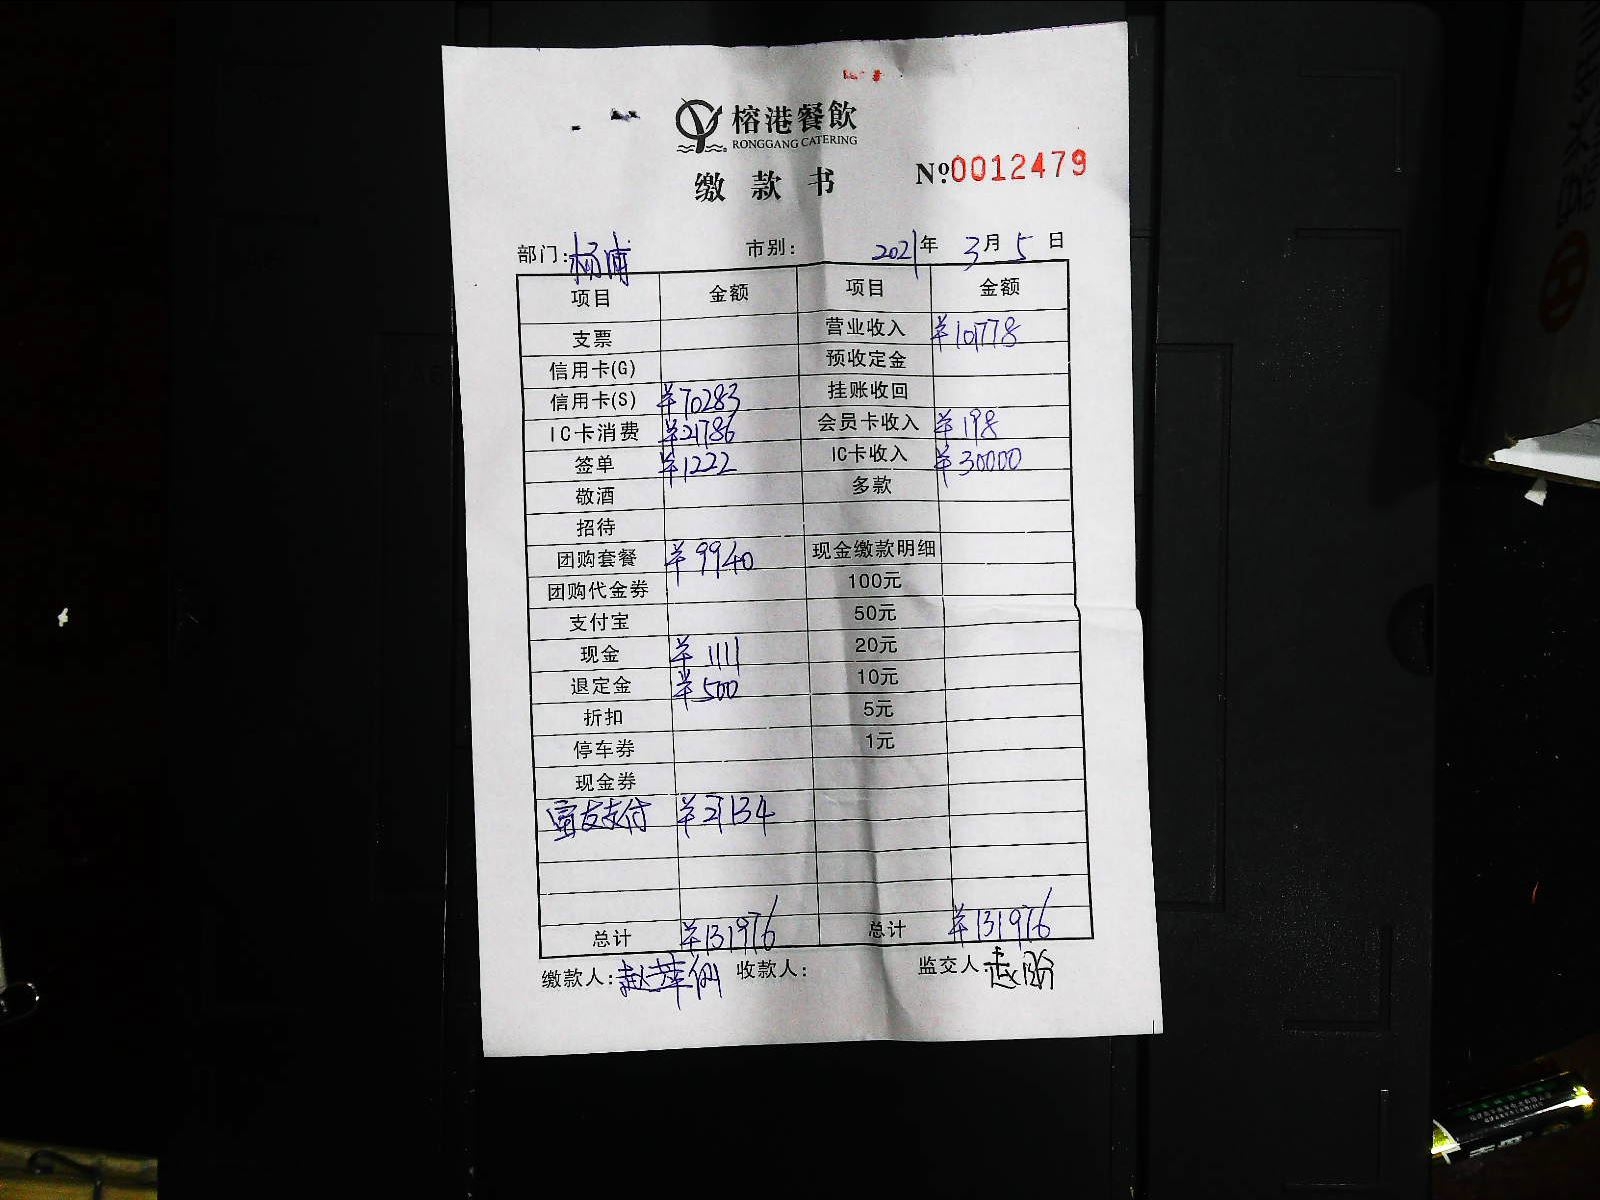 榕港餐飲
RONGGANG CATERING
缴款书 №0012479
部门:杨浦 市别: 2021年 3月 5日
项目 金额 项目 金额
支票 营业收入 ¥101778
信用卡(G) 预收定金
信用卡(S) ¥70283 挂账收回
IC卡消费 ¥21786 会员卡收入 ¥198
签单 ¥1222 IC卡收入 ¥30000
敬酒 多款
招待
团购套餐 ¥9940 现金缴款明细
团购代金券 100元
支付宝 50元
现金 ¥1111 20元
退定金 ¥500 10元
折扣 5元
停车券 1元
现金券
富友支付 ¥27134
总计 ¥131976 总计 ¥131976
缴款人: 收款人: 监交人: